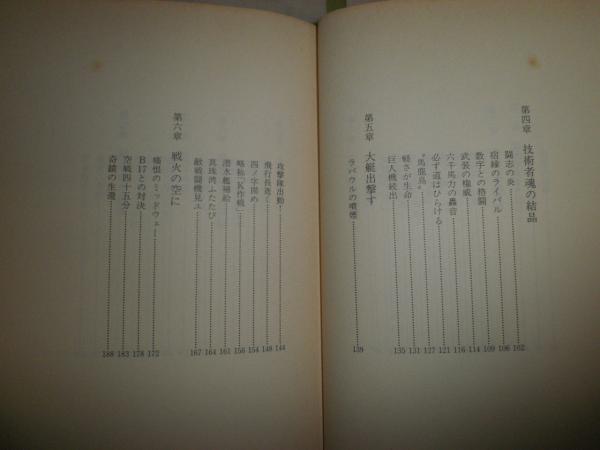 第四章 技術者魂の結晶
闘志の炎 102
宿縁のライバル 106
数字との格闘 109
武装の権威 114
六千馬力の轟音 116
必ず道はひらける 121
"馬鹿品" 127
軽さが生命 131
巨人機続出 135
第五章 大艇出撃す
ラバウルの噴煙 139
攻撃隊出動 144
飛行長逝く 148
四ノ字固め 154
略称「K作戦」 156
潜水艦補給 161
真珠湾ふたたび 164
敵戦闘機見ユ 167
第六章 戦火の空に
痛恨のミッドウェー 172
B17との対決 178
空戦四十五分 183
奇蹟の生還 188